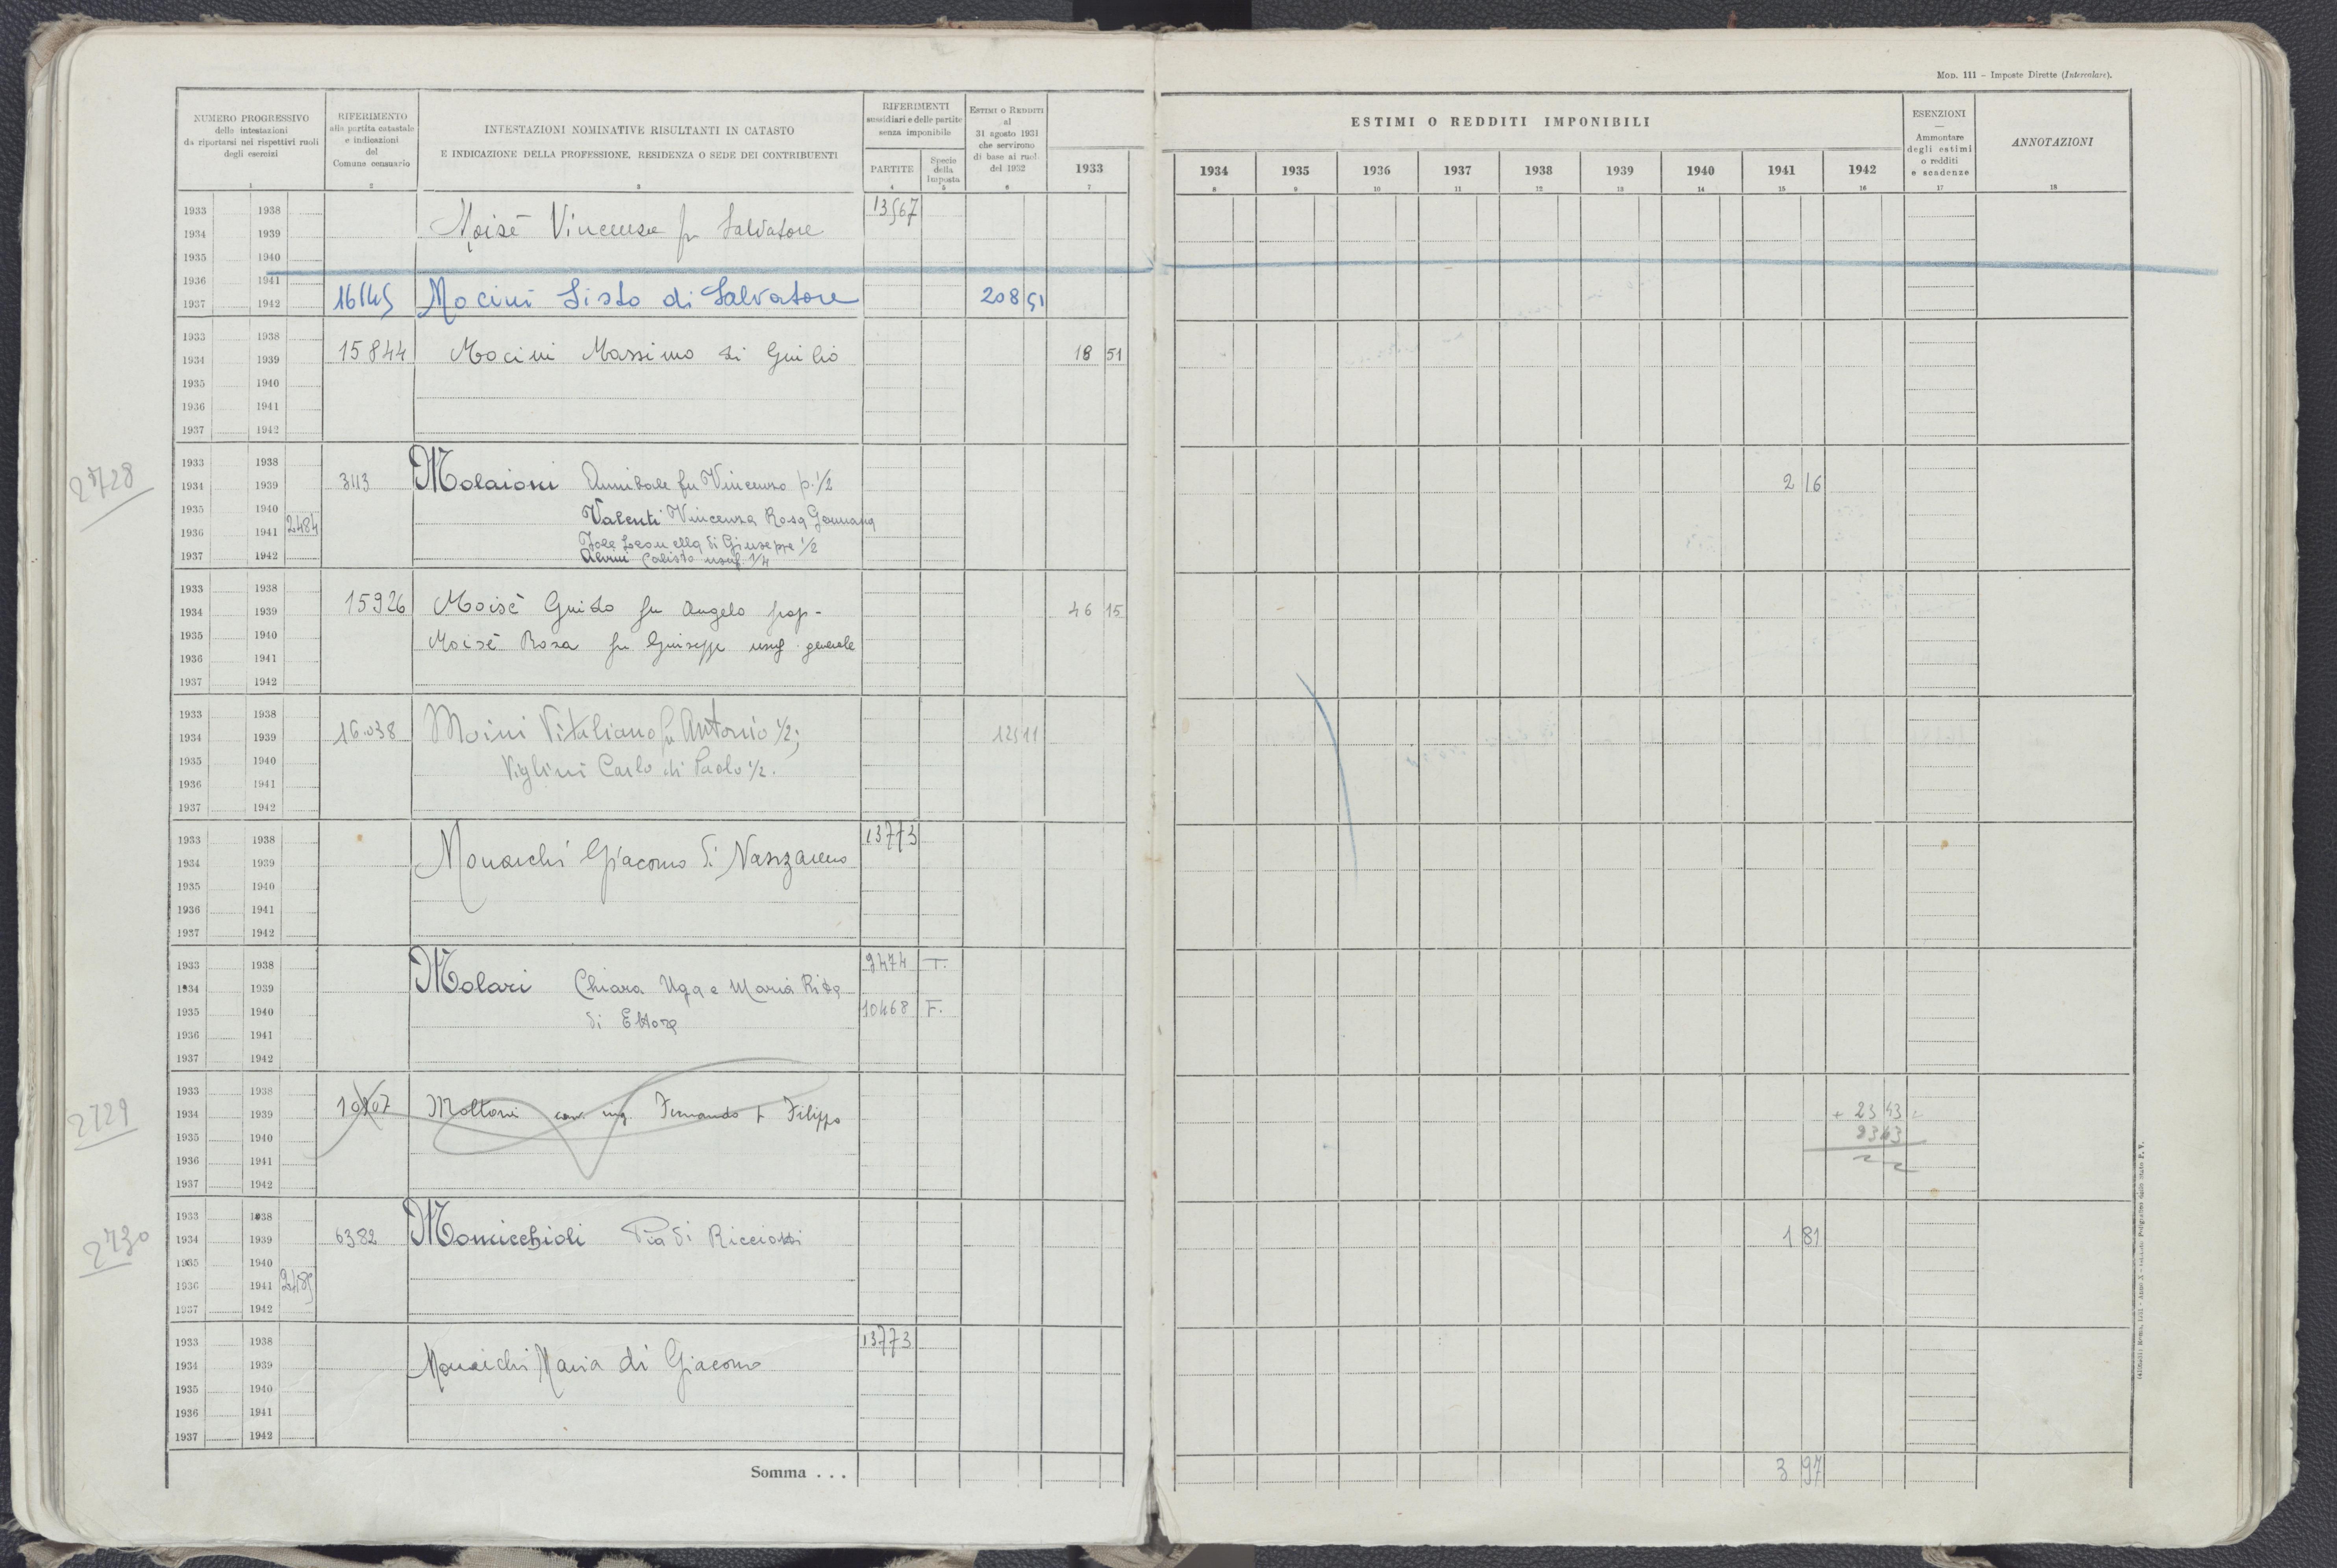 Mod. 111 – Imposte Dirette (Intercalare).
NUMERO PROGRESSIVO
delle intestazioni
da riportarsi nei rispettivi ruoli
degli esercizi
RIFERIMENTO
alla partita catastale
e indicazioni
del
Comune censuario
INTESTAZIONI NOMINATIVE RISULTANTI IN CATASTO
E INDICAZIONE DELLA PROFESSIONE, RESIDENZA O SEDE DEI CONTRIBUENTI
RIFERIMENTI
sussidiari e delle partite
senza imponibile
PARTITE
Specie
della
Imposta
ESTIMI O REDDITI
al
31 agosto 1931
che servirono
di base ai ruoli
del 1932
1933
ESTIMI O REDDITI IMPONIBILI
1934 1935 1936 1937 1938 1939 1940 1941 1942
ESENZIONI
—
Ammontare
degli estimi
o redditi
e scadenze
ANNOTAZIONI
1 2 3 4 5 6 7 8 9 10 11 12 13 14 15 16 17 18
1933 1938 13567
Moisè Vincenza fu Salvatore
1934 1939
1935 1940
1936 1941
1937 1942 16145 Mocini Sisto di Salvatore 208 51
1933 1938
1934 1939 15844 Mocini Massimo di Giulio 18 51
1935 1940
1936 1941
1937 1942
1933 1938
2728 1934 1939 3113 Molaioni Annibale fu Vincenzo p. 1/2 2 16
1935 1940 Valenti Vincenza Rosa
1936 1941 2484
di Giuseppe 1/2
1937 1942 Calisto usuf. 1/4
1933 1938
1934 1939 15926 Moisè Guido fu Angelo prop- 46 15
1935 1940 Moisè Rosa fu Giuseppe usuf. generale
1936 1941
1937 1942
1933 1938
1934 1939 16.038 Moini Vitaliano fu Antonio 1/2; 125 11
1935 1940 Viglini Carlo di Paolo 1/2.
1936 1941
1937 1942
1933 1938 13773
1934 1939 Monarchi Giacomo di Nazzareno
1935 1940
1936 1941
1937 1942
1933 1938 9474 T.
1934 1939 Molari Chiara Uga e Maria Rita
1935 1940 di Ettore 10468 F.
1936 1941
1937 1942
1933 1938
2729 1934 1939 Moltoni cav. ing. Fernando fu Filippo + 23 43
1935 1940 23 43
1936 1941
1937 1942
1933 1938
2730 1934 1939 6382 Momicchioli Pia di Ricciotti 1 81
1935 1940
1936 1941 2485
1937 1942
1933 1938 13773
1934 1939 Monarchi Maria di Giacomo
1935 1940
1936 1941
1937 1942
Somma . . . 3 97